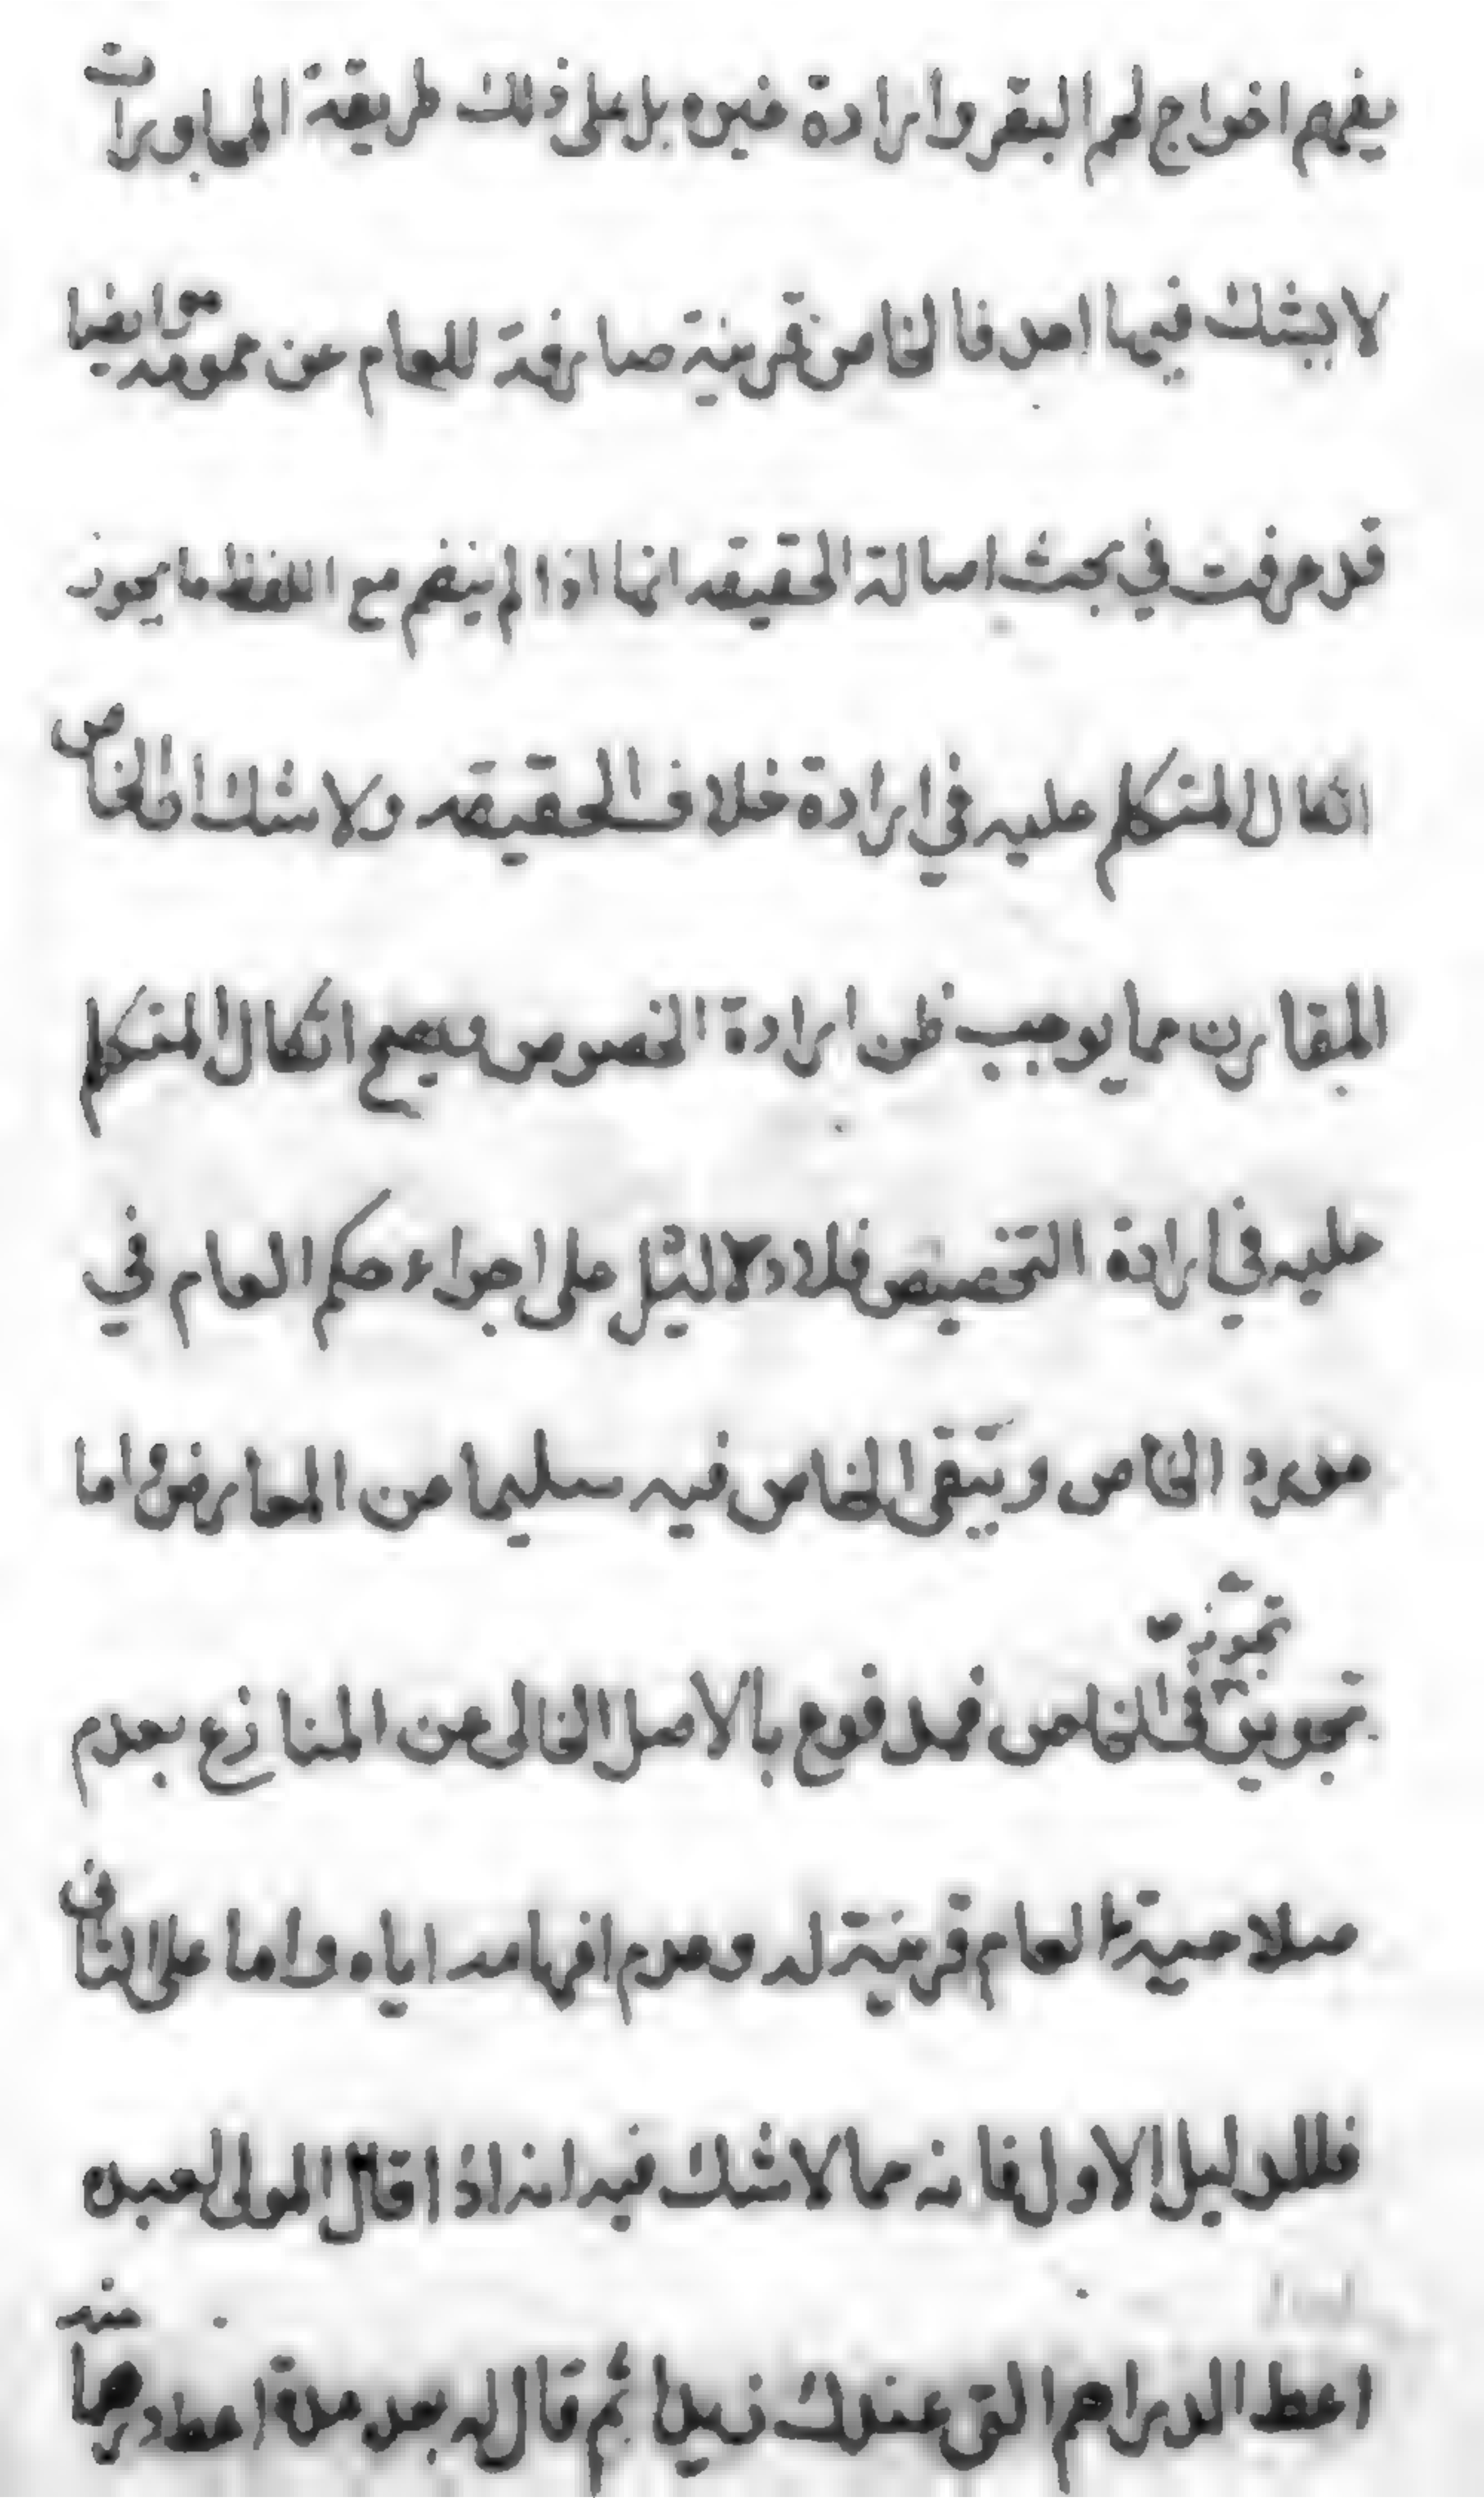 يفهم اخراج لحم البقر وارادة غيره بل على ذلك طريقة المحاورات
لا يشك فيها احد فالخاص قرينة صارفة للعام عن عمومه وايضا
قد عرفت في بحث اصالة الحقيقه انها اذا لم ينضم مع اللفظ ما يجوز
اتكال المتكلم عليه في ارادة خلاف الحقيقه ولا شك ان الخاص
المقارن مما يوجب ظن ارادة الخصوص ويصح اتكال المتكلم
عليه في ارادة التخصيص فلا دليل على اجراء حكم العام في
مورد الخاص ويبقى الخاص فيه سليما عن المعارض واما
تجوز
تجويز في الخاص فمدفوع بالاصل الخالى عن المنازع بعدم
صلاحية العام قرينة له وعدم افهامه اياه واما على الثانى
فللدليل الاول فانه مما لا شك فيه انه اذا قال المولى لعبده
اعط الدراهم التى عندك زيدا ثم قال له بعد مدة اعط درهما منه